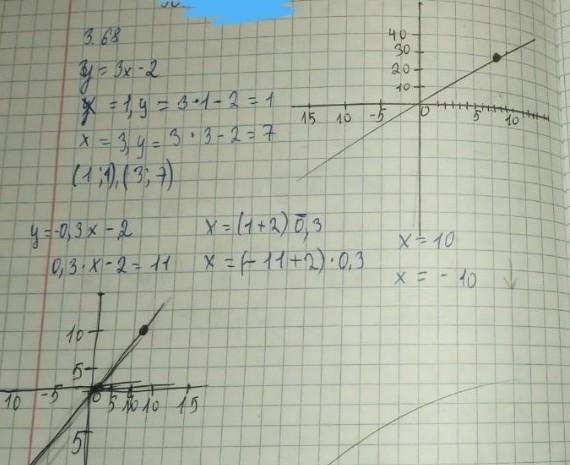 3.68
y = 3x - 2
x = 1, y = 3 · 1 - 2 = 1
x = 3, y = 3 · 3 - 2 = 7
(1; 1), (3; 7)
40
30
20
10
15 10 -5 0 5 10
y = -0,3x - 2
0,3 · x - 2 = 11
x = (1 + 2) 0,3
x = (- 11 + 2) · 0,3
x = 10
x = - 10
10
5
10 -5 0 5 10 10 15
5